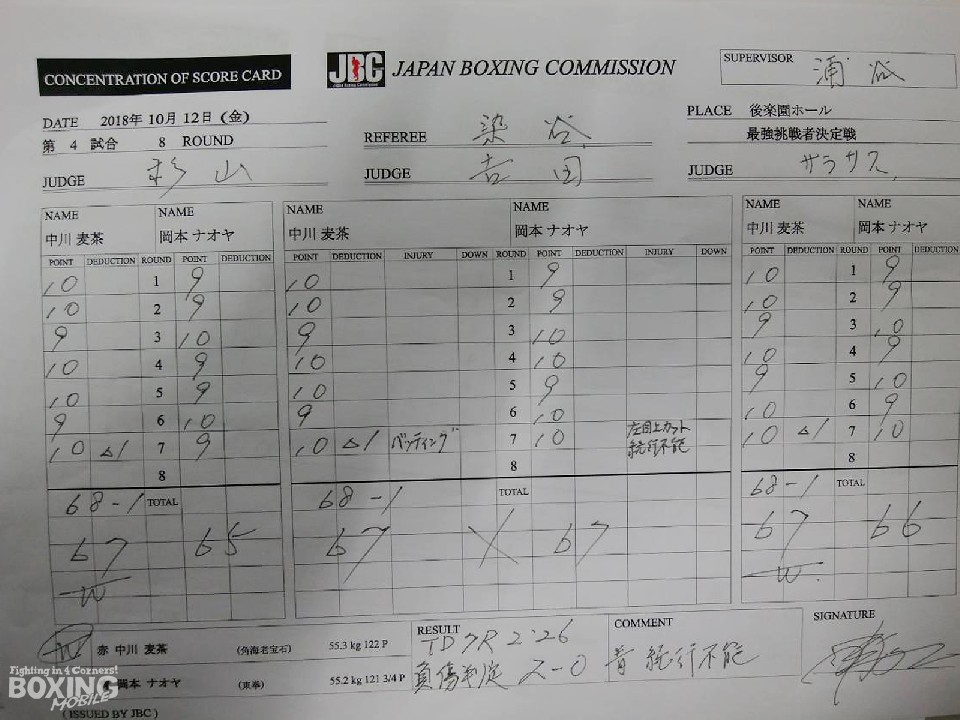 CONCENTRATION OF SCORE CARD
JBC JAPAN BOXING COMMISSION
SUPERVISOR 浦谷
DATE 2018年 10月 12日 (金)
PLACE 後楽園ホール
第 4 試合 8 ROUND
REFEREE 染谷
最強挑戦者決定戦
JUDGE 杉山
JUDGE 吉田
JUDGE サラサス
NAME NAME NAME NAME NAME NAME
中川 麦茶 岡本 ナオヤ 中川 麦茶 岡本 ナオヤ 中川 麦茶 岡本 ナオヤ
POINT DEDUCTION ROUND POINT DEDUCTION POINT DEDUCTION INJURY DOWN ROUND POINT DEDUCTION INJURY DOWN POINT DEDUCTION ROUND POINT DEDUCTION
10 1 9 10 1 9 10 1 9
10 2 9 10 2 9 10 2 9
9 3 10 9 3 10 9 3 10
10 4 9 10 4 10 10 4 9
10 5 9 10 5 9 9 5 10
9 6 10 9 6 10 10 6 9
10 △1 7 9 10 △1 バッティング 7 10 左目上カット 続行不能 10 △1 7 10
8 8 8
68-1 TOTAL 68-1 TOTAL 68-1 TOTAL
67 65 67 X 67 67 66
W W
赤 中川 麦茶 (角海老宝石) 55.3 kg 122 P
岡本 ナオヤ (東拳) 55.2 kg 121 3/4 P
RESULT
TD 7R 2'26
負傷判定 2-0
COMMENT
青 続行不能
SIGNATURE
(ISSUED BY JBC)
Fighting in 4 Corners!
BOXING
MOBILE